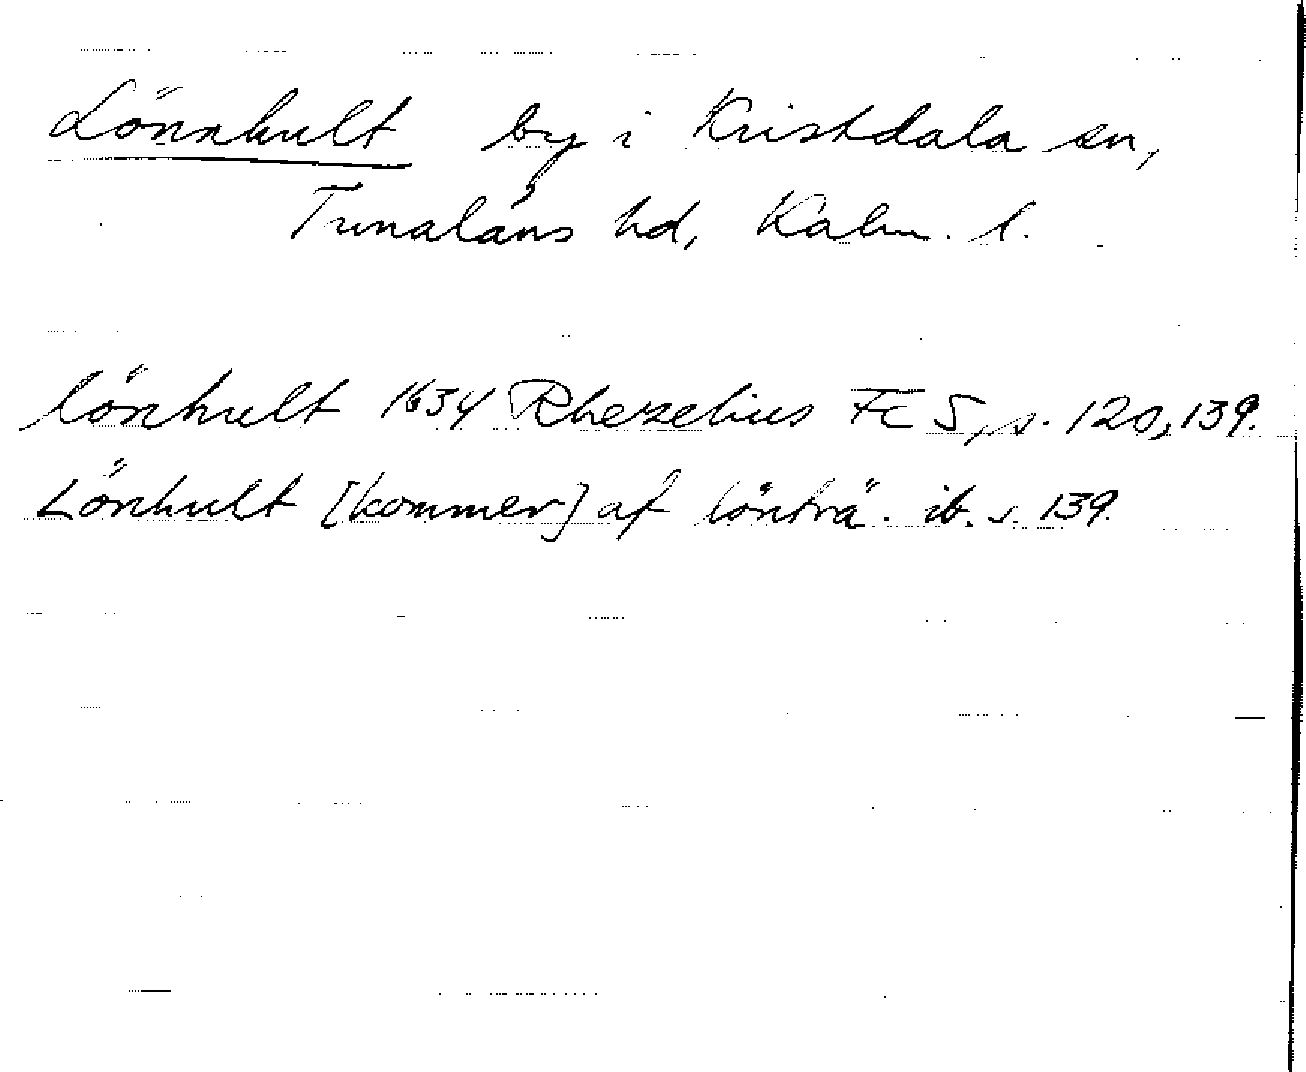 Lönnhult by i Kristdala sn,
Tunaläns hd, Kalm. l.
lönhult 1634 Rhezelius Fc 5, s. 120, 139.
Lönhult [kommer] af lönträ. ib. s. 139.